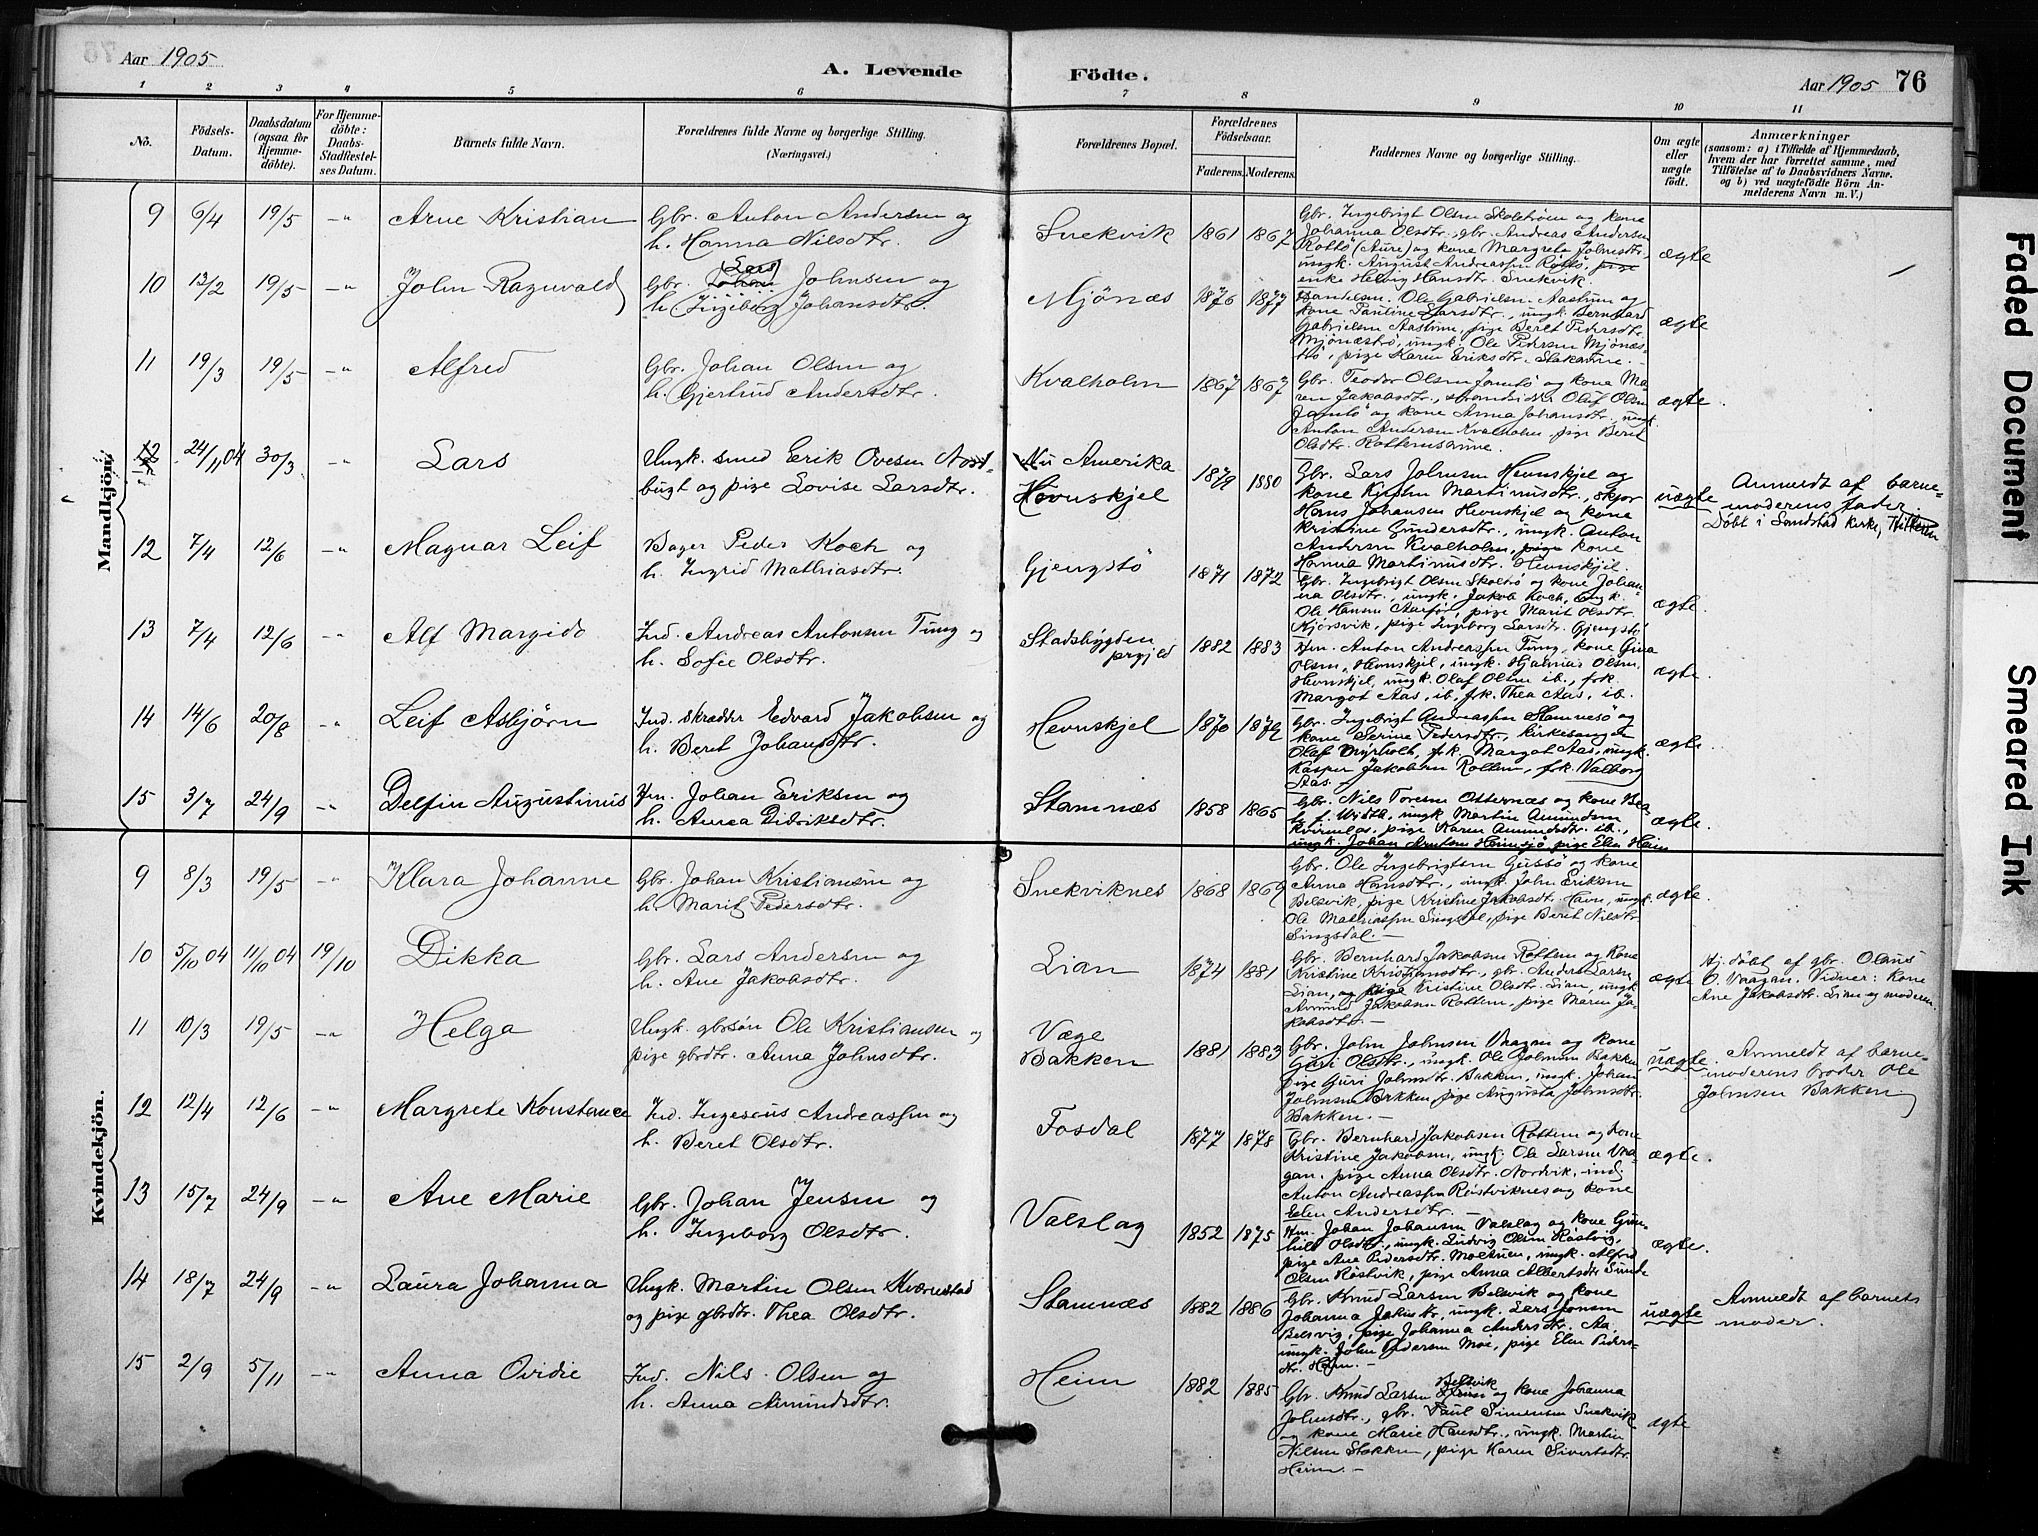 Aar 1905
A. Levende
Födte.
Aar 1905 76
1 2 3 4 5 6 7 8 9 10 11
No.
Födsels-
Datum.
Daabsdatum
(ogsaa for
Hjemme-
döbte).
For Hjemme-
döbte:
Daabs-
Stadfæstel-
ses Datum.
Barnets fulde Navn.
Forældrenes fulde Navne og borgerlige Stilling.
(Næringsvei.)
Forældrenes Bopæl.
Forældrenes
Födselsaar.
Faderens. Moderens.
Faddernes Navne og borgerlige Stilling.
Om ægte
eller
uægte
födt.
Anmærkninger
(saasom: a) i Tilfælde af Hjemmedaab,
hvem der har forrettet samme, med
Tilföielse af to Daabsvidners Navne.
og b) ved uægtefödte Börn An-
melderens Navn m. V.)
Mandkjön.
9 6/4 19/5 -"- Arne Kristian
Gbr. Anton Andersen og
h. Hanna Nilsdtr.
Snekvik 1861 1867
Gbr. Ingebrigt Olsen og kone
Johanna Olsdtr., gbr. Andreas Andersen
(Aure) og kone Margrete Johnsdtr.
enke Helvig Hansdtr. Snekvik.
ægte
10 13/2 19/5 -"- John Ragnvald
Gbr. (Lars) Johnsen og
h. Ingeborg Johansdtr.
Mjönæs 1876 1877
Ole Gabrielsen Aastun og
kone Pauline Larsdtr., ungk. Bernhard
Gabrielsen Aastun, pige Beret Pedersdtr.
ungk. Ole Pedersen Mjönæs-
pige Karen Eriksdtr.
ægte
11 19/3 19/5 -"- Alfred
Gbr. Johan Olsen og
h. Gjertrud Andersdtr.
Kvalholm 1867 1867
Gbr. Teodor Olsen og kone Ma-
ren Jakobsdtr., Oluf Olsen
og kone Anna Johansdtr., ungk.
Anton Andersen Kvalholm, pige Beret
Olsdtr.
ægte.
12 24/11 04 30/3 -"- Lars
Ungk. smed Erik Ovesen Nost-
bugt og pige Lovise Larsdtr.
Nu Amerika
Hevnskjel
1879 1880
Gbr. Lars Johnsen Hevnskjel og
kone Kjersten Martinusdtr.,
Hans Johansen Hevnskjel og kone
Kristine Gundersdtr., ungk. Anton
Andersen Kvalholm, pige kone
Hanna Martinusdtr. Hevnskjel.
uægte
Anmeldt af barne-
moderens fader.
Döbt i Sandstad kirke, Hitteren
12 7/4 12/6 -"- Magnar Leif
Bager Peder Koch og
h. Ingrid Mathiasdtr.
Gjengstö 1871 1872
Gbr. Ingebrigt Olsen og kone Johan-
na Olsdtr., ungk. Jakob Koch, ungk.
Ole Hansen pige Marit Olsdtr.
Kjörsvik, pige Ingeborg Larsdtr. Gjengstö
ægte.
13 7/4 12/6 -"- Alf Margido
Ind. Andreas Antonsen Tung og
h. Sofie Olsdtr.
Stadsbygden
prgjld
1882 1883
Anton Andreassen Tung, kone Gina
Olsen, Hevnskjel, ungk. Hjalmar Olsen,
Hevnskjel, ungk. Olaf Olsen ib., frk.
Margot Aas, ib, frk. Thea Aas, ib.
ægte.
14 14/6 20/8 -"- Leif Asbjörn
Ind. skrædder Edvard Jakobsen og
h. Beret Johansdtr.
Hevnskjel 1870 1872
Gbr. Ingebrigt Andreassen Stamnesö og
kone Serine Pedersdtr., kirkesanger
Olaf Myrholt, frk. Margot Aas, ungk.
Kasper Jakobsen Rottem, frk. Valborg
Aas.
ægte.
15 3/7 24/9 -"- Delfin Augustinus
Johan Eriksen og
h. Anna Didriksdtr.
Stamnæs 1858 1865
Gbr. Nils Toresen Otternæs og kone
ungk. Martin Amundsen
pige Karen Amundsdtr. ib.,
ungk. Johan Antons Heimsjö, pige Elen Heim
ægte.
Kvindekjön.
9 8/3 19/5 -"- Klara Johanne
Gbr. Johan Kristiansen og
h. Marit Pedersdtr.
Snekviknes 1868 1869
Gbr. Ole Ingebrigtsen og kone
Anna Hansdtr., ungk. John Eriksen
Belsvik, pige Kristine Jakobsdtr. ungk.
Ole Mathiassen Singsdal, pige Beret Nilsdtr.
Singsdal.-
ægte.
10 5/10 04 11/10 04 19/10 Dikka
Gbr. Lars Andersen og
h. Ane Jakobsdtr.
Lian 1874 1881
Gbr. Bernhard Jakobsen Rottem og kone
Kristine Kristiansdtr., gbr. Anders Larsen
Lian, og pige Kristine Olsdtr. Lian, ungk.
Amund Jakobsen Rottem, pige Maren Ja-
kobsdtr.-
ægte
Hj. döbt af gbr. Olaus
O. Vragan. Vidner: kone
Ane Jakobsdtr. Lian og moderen.
11 10/3 19/5 -"- Helga
Ungk. gbrsön Ole Kristiansen og
pige gbrdtr. Anna Johnsdtr.
Væge
Bakken
1881 1883
Gbr. John Johnsen Vragan og kone
Guri Olsdtr., ungk. Ole Johnsen Bakken
pige Guri Johnsdtr. Bakken, ungk. Johan
Johnsen Bakken, pige Augusta Johnsdtr.
Bakken.-
uægte.
Anmeldt af barne-
moderens broder Ole
Johnsen Bakken
12 12/4 12/6 -"- Margrete Konstance
Ind. Ingenius Andreassen og
h. Beret Olsdtr.
Fosdal 1877 1878
Gbr. Bernhard Jakobsen Rottem og kone
Kristine Jakobsen, ungk. Ole Larsen Vra-
gan, pige Anna Olsdtr. Nordvik, ind.
Anton Andreassen Röstviknes og kone
Elen Andersdtr.-
ægte.
13 15/7 24/9 -"- Ane Marie
Gbr. Johan Jensen og
h. Ingeborg Olsdtr.
Valslag 1852 1875
Johan Johansen Valslag og kone Gun-
hild Olsdtr., ungk. Ludvig Olsen Röstvig,
pige Ane Pedersdtr. ungk. Alfred
Olsen Röstvik, pige Anna Albertsdtr. Sunde
ægte.
14 18/7 24/9 -"- Laura Johanna
Ungk. Martin Olsen Kværnstad
og pige gbrdtr. Thea Olsdtr.
Stamnæs 1882 1886
Gbr. Knud Larsen Belsvik og kone
Johanna Johnsdtr., ungk. Lars Jonsen
Belsvig, pige Johanna Andersdtr. Aa.
ungk. John Pedersen Moe, pige Elen Peders-
dtr. Heim.-
uægte
Anmeldt af barnets
moder.
15 2/9 5/11 -"- Anna Ovidie
Ind. Nils Olsen og
h. Anna Amundsdtr.
Heim 1882 1885
Gbr. Knud Larsen Belsvik og kone Johanna
Johnsdtr., gbr. Paul Simensen Snekvik
og kone Marie Hansdtr., ungk. Martin
Nilsen Stokken, pige Karen Sivertsdtr.
Heim.-
ægte
Faded Document
Smeared Ink